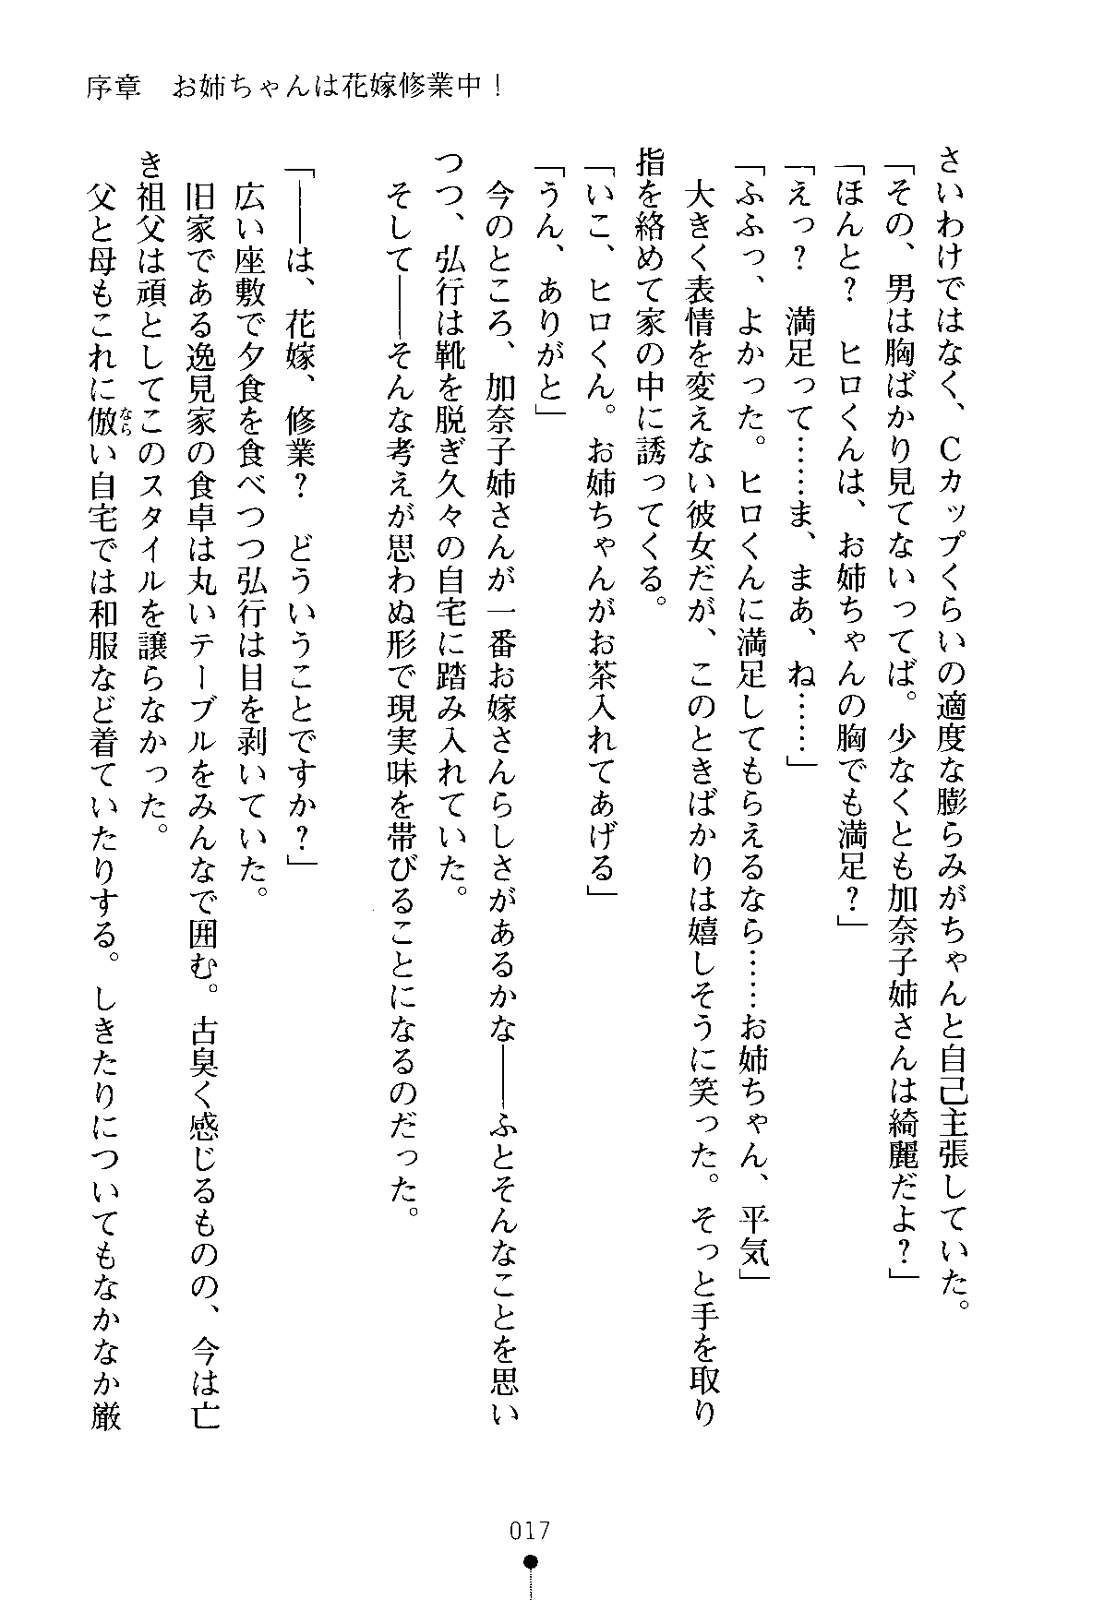 序章　お姉ちゃんは花嫁修業中！
さいわけではなく、Ｃカップくらいの適度な膨らみがちゃんと自己主張していた。
「その、男は胸ばかり見てないってば。少なくとも加奈子姉さんは綺麗だよ？」
「ほんと？　ヒロくんは、お姉ちゃんの胸でも満足？」
「えっ？　満足って……ま、まあ、ね……」
「ふふっ、よかった。ヒロくんに満足してもらえるなら……お姉ちゃん、平気」
　大きく表情を変えない彼女だが、このときばかりは嬉しそうに笑った。そっと手を取り
指を絡めて家の中に誘ってくる。
「いこ、ヒロくん。お姉ちゃんがお茶入れてあげる」
「うん、ありがと」
　今のところ、加奈子姉さんが一番お嫁さんらしさがあるかな――ふとそんなことを思い
つつ、弘行は靴を脱ぎ久々の自宅に踏み入れていた。
　そして――そんな考えが思わぬ形で現実味を帯びることになるのだった。
「――は、花嫁、修業？　どういうことですか？」
　広い座敷で夕食を食べつつ弘行は目を剥いていた。
　旧家である逸見家の食卓は丸いテーブルをみんなで囲む。古臭く感じるものの、今は亡
き祖父は頑としてこのスタイルを譲らなかった。
　父と母もこれに倣い自宅では和服など着ていたりする。しきたりについてもなかなか厳
なら
017